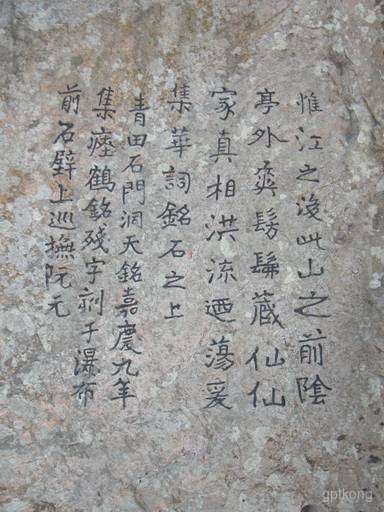 惟江之後此山之前陰
亭外爽髣髴藏仙仙
家真相洪流迺蕩爰
集華詞銘石之上
青田石門洞天銘嘉慶九年
集瘞鶴銘殘字刻于瀑布
前石壁上巡撫阮元
gptkong